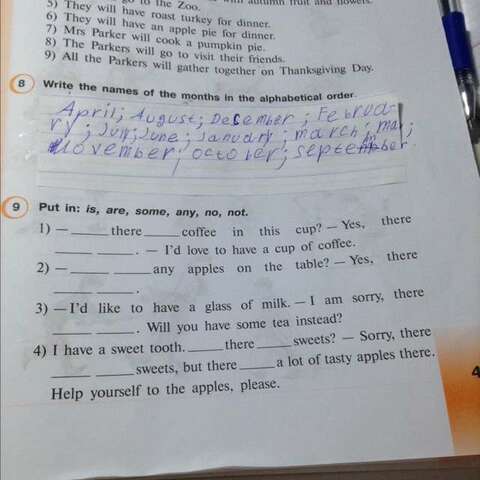 go to the Zoo.
with autumn fruit and flowers.
5) They will have roast turkey for dinner.
6) They will have an apple pie for dinner.
7) Mrs Parker will cook a pumpkin pie.
8) The Parkers will go to visit their friends.
9) All the Parkers will gather together on Thanksgiving Day.
8 Write the names of the months in the alphabetical order.
April; August; December; Februa-
ry; July; June; January; march; may;
November; october; september.
9 Put in: is, are, some, any, no, not.
1) — _____ there _____ coffee in this cup? — Yes, there
_____ _____. — I'd love to have a cup of coffee.
2) — _____ _____ any apples on the table? — Yes, there
_____ _____.
3) — I'd like to have a glass of milk. — I am sorry, there
_____ _____. Will you have some tea instead?
4) I have a sweet tooth. _____ there _____ sweets? — Sorry, there
_____ _____ sweets, but there _____ a lot of tasty apples there.
Help yourself to the apples, please.
4